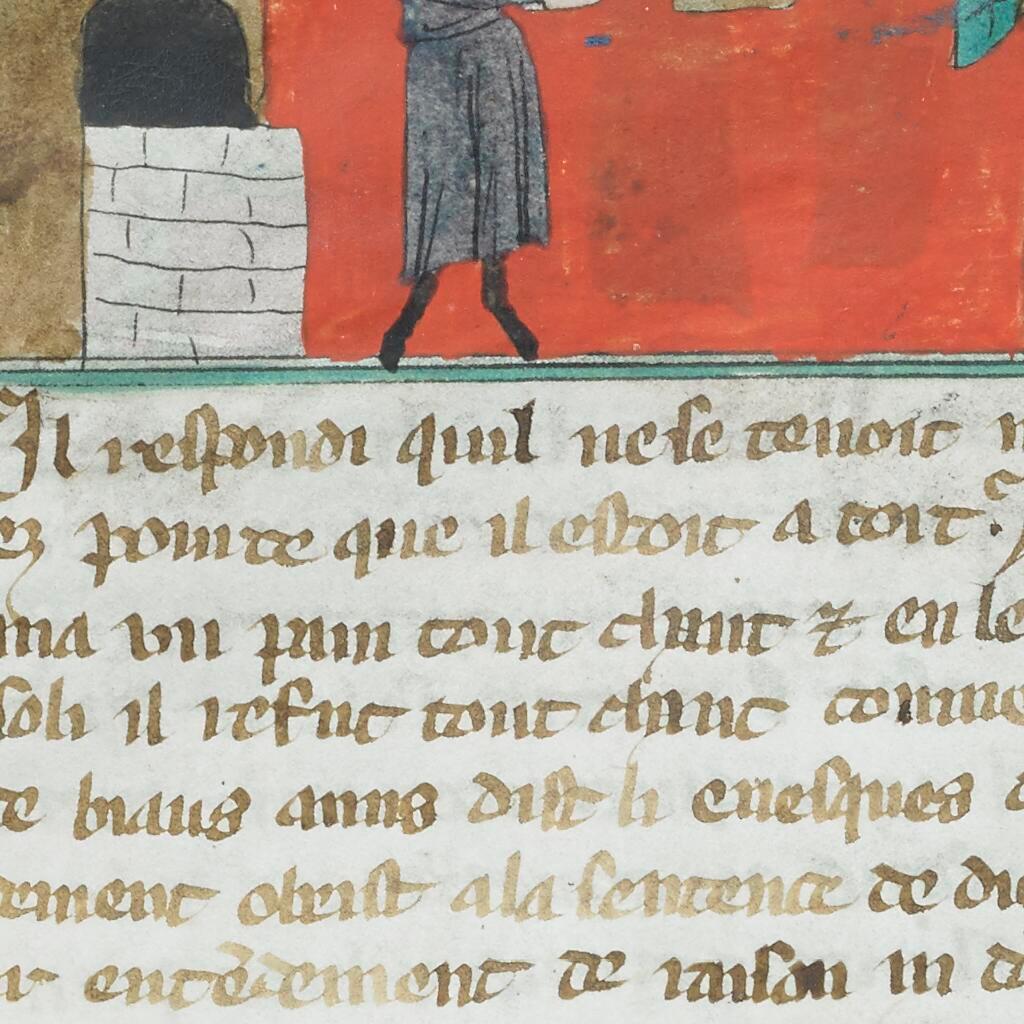 Il respondi quil ne se tenoit
ez pointe que il estoit a toit.
ma vn pain tout chaut ⁊ en le
soli il refut tout chaut comme
te biaus amis dist li euesques
dement obeist a la sentence de di
entendement de raison in de